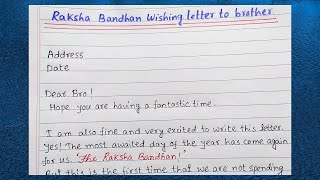 Raksha Bandhan Wishing letter to brother
Address
Date
Dear Bro!
Hope you are having a fantastic time.
I am also fine and very excited to write this letter.
Yes! The most awaited day of the year has come again
for us. "The Raksha Bandhan!"
But this is the first time that we are not spending